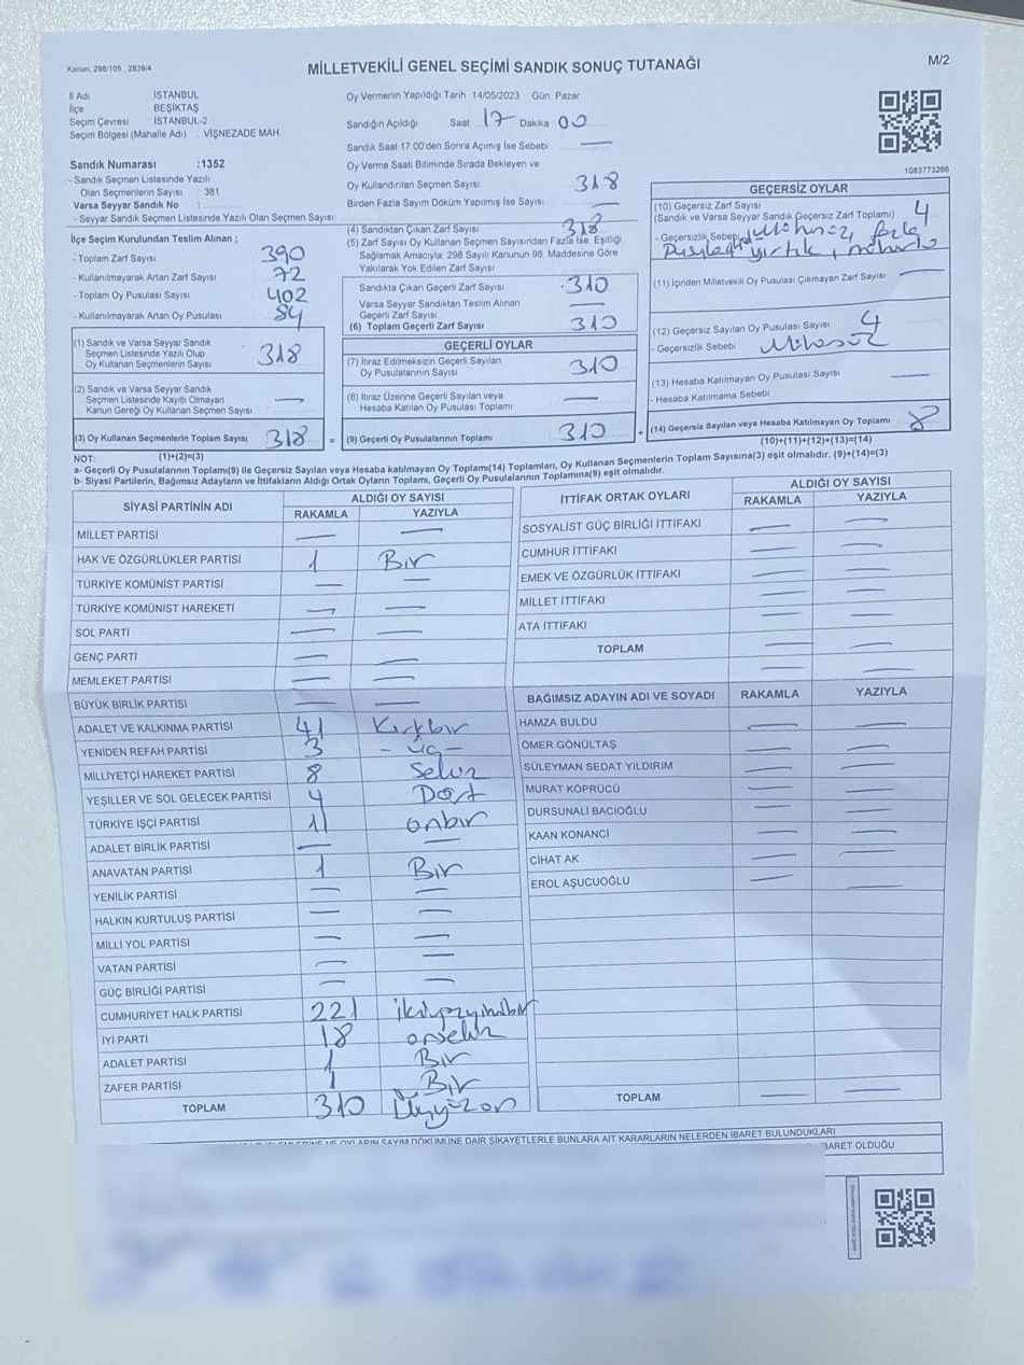 Kanun, 298/105 , 2839/4
MİLLETVEKİLİ GENEL SEÇİMİ SANDIK SONUÇ TUTANAĞI
M/2
İl Adı İSTANBUL
İlçe BEŞİKTAŞ
Seçim Çevresi İSTANBUL-2
Seçim Bölgesi (Mahalle Adı) : VİŞNEZADE MAH.
Oy Vermenin Yapıldığı Tarih 14/05/2023 Gün Pazar
Sandığın Açıldığı Saat 17 Dakika 00
Sandık Saat 17:00'den Sonra Açılmış İse Sebebi —
Sandık Numarası :1352
- Sandık Seçmen Listesinde Yazılı
Olan Seçmenlerin Sayısı : 381
Varsa Seyyar Sandık No :
- Seyyar Sandık Seçmen Listesinde Yazılı Olan Seçmen Sayısı :
Oy Verme Saati Bitiminde Sırada Bekleyen ve
Oy Kullandırılan Seçmen Sayısı 318
Birden Fazla Sayım Döküm Yapılmış İse Sayısı —
1083773266
İlçe Seçim Kurulundan Teslim Alınan ;
- Toplam Zarf Sayısı 390
- Kullanılmayarak Artan Zarf Sayısı 72
- Toplam Oy Pusulası Sayısı 402
- Kullanılmayarak Artan Oy Pusulası 84
(1) Sandık ve Varsa Seyyar Sandık
Seçmen Listesinde Yazılı Olup
Oy Kullanan Seçmenlerin Sayısı 318
(2) Sandık ve Varsa Seyyar Sandık
Seçmen Listesinde Kayıtlı Olmayan
Kanun Gereği Oy Kullanan Seçmen Sayısı —
(3) Oy Kullanan Seçmenlerin Toplam Sayısı 318 =
(1)+(2)=(3)
(4) Sandıktan Çıkan Zarf Sayısı 318
(5) Zarf Sayısı Oy Kullanan Seçmen Sayısından Fazla İse, Eşitliği
Sağlamak Amacıyla; 298 Sayılı Kanunun 98. Maddesine Göre
Yakılarak Yok Edilen Zarf Sayısı
Sandıkta Çıkan Geçerli Zarf Sayısı 310
Varsa Seyyar Sandıktan Teslim Alınan
Geçerli Zarf Sayısı —
(6) Toplam Geçerli Zarf Sayısı 310
GEÇERLİ OYLAR
(7) İtiraz Edilmeksizin Geçerli Sayılan
Oy Pusulalarının Sayısı 310
(8) İtiraz Üzerine Geçerli Sayılan veya
Hesaba Katılan Oy Pusulası Toplamı —
(9) Geçerli Oy Pusulalarının Toplamı 310 +
GEÇERSİZ OYLAR
(10) Geçersiz Zarf Sayısı 4
(Sandık ve Varsa Seyyar Sandık Geçersiz Zarf Toplamı)
- Geçersizlik Sebebi fazla
yırtık,
(11) İçinden Milletvekili Oy Pusulası Çıkmayan Zarf Sayısı —
(12) Geçersiz Sayılan Oy Pusulası Sayısı 4
- Geçersizlik Sebebi Mühürsüz
(13) Hesaba Katılmayan Oy Pusulası Sayısı —
- Hesaba Katılmama Sebebi
(14) Geçersiz Sayılan veya Hesaba Katılmayan Oy Toplamı 8
(10)+(11)+(12)+(13)=(14)
NOT:
a- Geçerli Oy Pusulalarının Toplamı(9) ile Geçersiz Sayılan veya Hesaba katılmayan Oy Toplamı(14) Toplamları, Oy Kullanan Seçmenlerin Toplam Sayısına(3) eşit olmalıdır. (9)+(14)=(3)
b- Siyasi Partilerin, Bağımsız Adayların ve İttifakların Aldığı Ortak Oyların Toplamı, Geçerli Oy Pusulalarının Toplamına(9) eşit olmalıdır.
SİYASİ PARTİNİN ADI ALDIĞI OY SAYISI
RAKAMLA YAZIYLA
MİLLET PARTİSİ — —
HAK VE ÖZGÜRLÜKLER PARTİSİ 1 Bir
TÜRKİYE KOMÜNİST PARTİSİ — —
TÜRKİYE KOMÜNİST HAREKETİ — —
SOL PARTİ — —
GENÇ PARTİ — —
MEMLEKET PARTİSİ — —
BÜYÜK BİRLİK PARTİSİ — —
ADALET VE KALKINMA PARTİSİ 41 Kırkbir
YENİDEN REFAH PARTİSİ 3 - üç -
MİLLİYETÇİ HAREKET PARTİSİ 8 Sekiz
YEŞİLLER VE SOL GELECEK PARTİSİ 4 Dört
TÜRKİYE İŞÇİ PARTİSİ 11 onbir
ADALET BİRLİK PARTİSİ — —
ANAVATAN PARTİSİ 1 Bir
YENİLİK PARTİSİ — —
HALKIN KURTULUŞ PARTİSİ — —
MİLLİ YOL PARTİSİ — —
VATAN PARTİSİ — —
GÜÇ BİRLİĞİ PARTİSİ — —
CUMHURİYET HALK PARTİSİ 221 ikiyüzyirmibir
İYİ PARTİ 18 onsekiz
ADALET PARTİSİ 1 Bir
ZAFER PARTİSİ 1 Bir
TOPLAM 310 Üçyüzon
İTTİFAK ORTAK OYLARI ALDIĞI OY SAYISI
RAKAMLA YAZIYLA
SOSYALİST GÜÇ BİRLİĞİ İTTİFAKI — —
CUMHUR İTTİFAKI — —
EMEK VE ÖZGÜRLÜK İTTİFAKI — —
MİLLET İTTİFAKI — —
ATA İTTİFAKI — —
TOPLAM — —
BAĞIMSIZ ADAYIN ADI VE SOYADI RAKAMLA YAZIYLA
HAMZA BULDU — —
ÖMER GÖNÜLTAŞ — —
SÜLEYMAN SEDAT YILDIRIM — —
MURAT KÖPRÜCÜ — —
DURSUNALİ BACIOĞLU — —
KAAN KONANCİ — —
CİHAT AK — —
EROL AŞUCUOĞLU — —
TOPLAM — —
OYLARIN SAYIM DÖKÜMÜNE DAİR ŞİKAYETLERLE BUNLARA AİT KARARLARIN NELERDEN İBARET BULUNDUKLARI
İBARET OLDUĞU